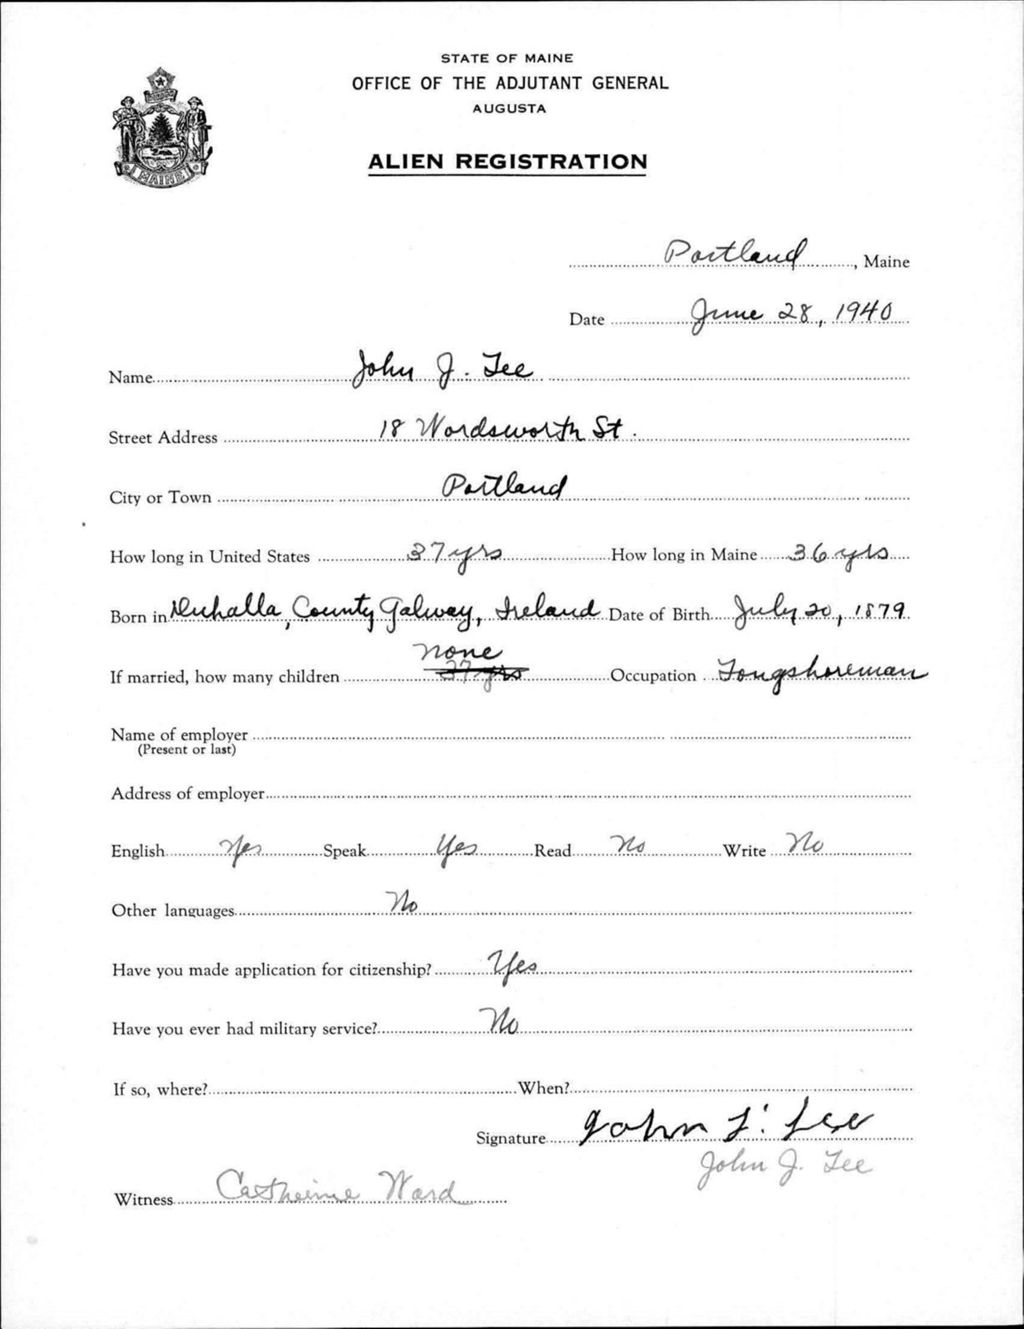 STATE OF MAINE
OFFICE OF THE ADJUTANT GENERAL
AUGUSTA
ALIEN REGISTRATION
MAINE
Portland, Maine
Date June 28, 1940
Name John J. Lee
Street Address 18 Wordsworth St.
City or Town Portland
How long in United States 37 yrs How long in Maine 36 yrs
Born in Duhalla, County Galway, Ireland Date of Birth July 20, 1879
none
If married, how many children 37 yrs Occupation Longshoreman
Name of employer
(Present or last)
Address of employer
English Yes Speak Yes Read No Write No
Other languages No
Have you made application for citizenship? Yes
Have you ever had military service? No
If so, where? When?
Signature John J. Lee
John J. Lee
Witness Catherine Ward